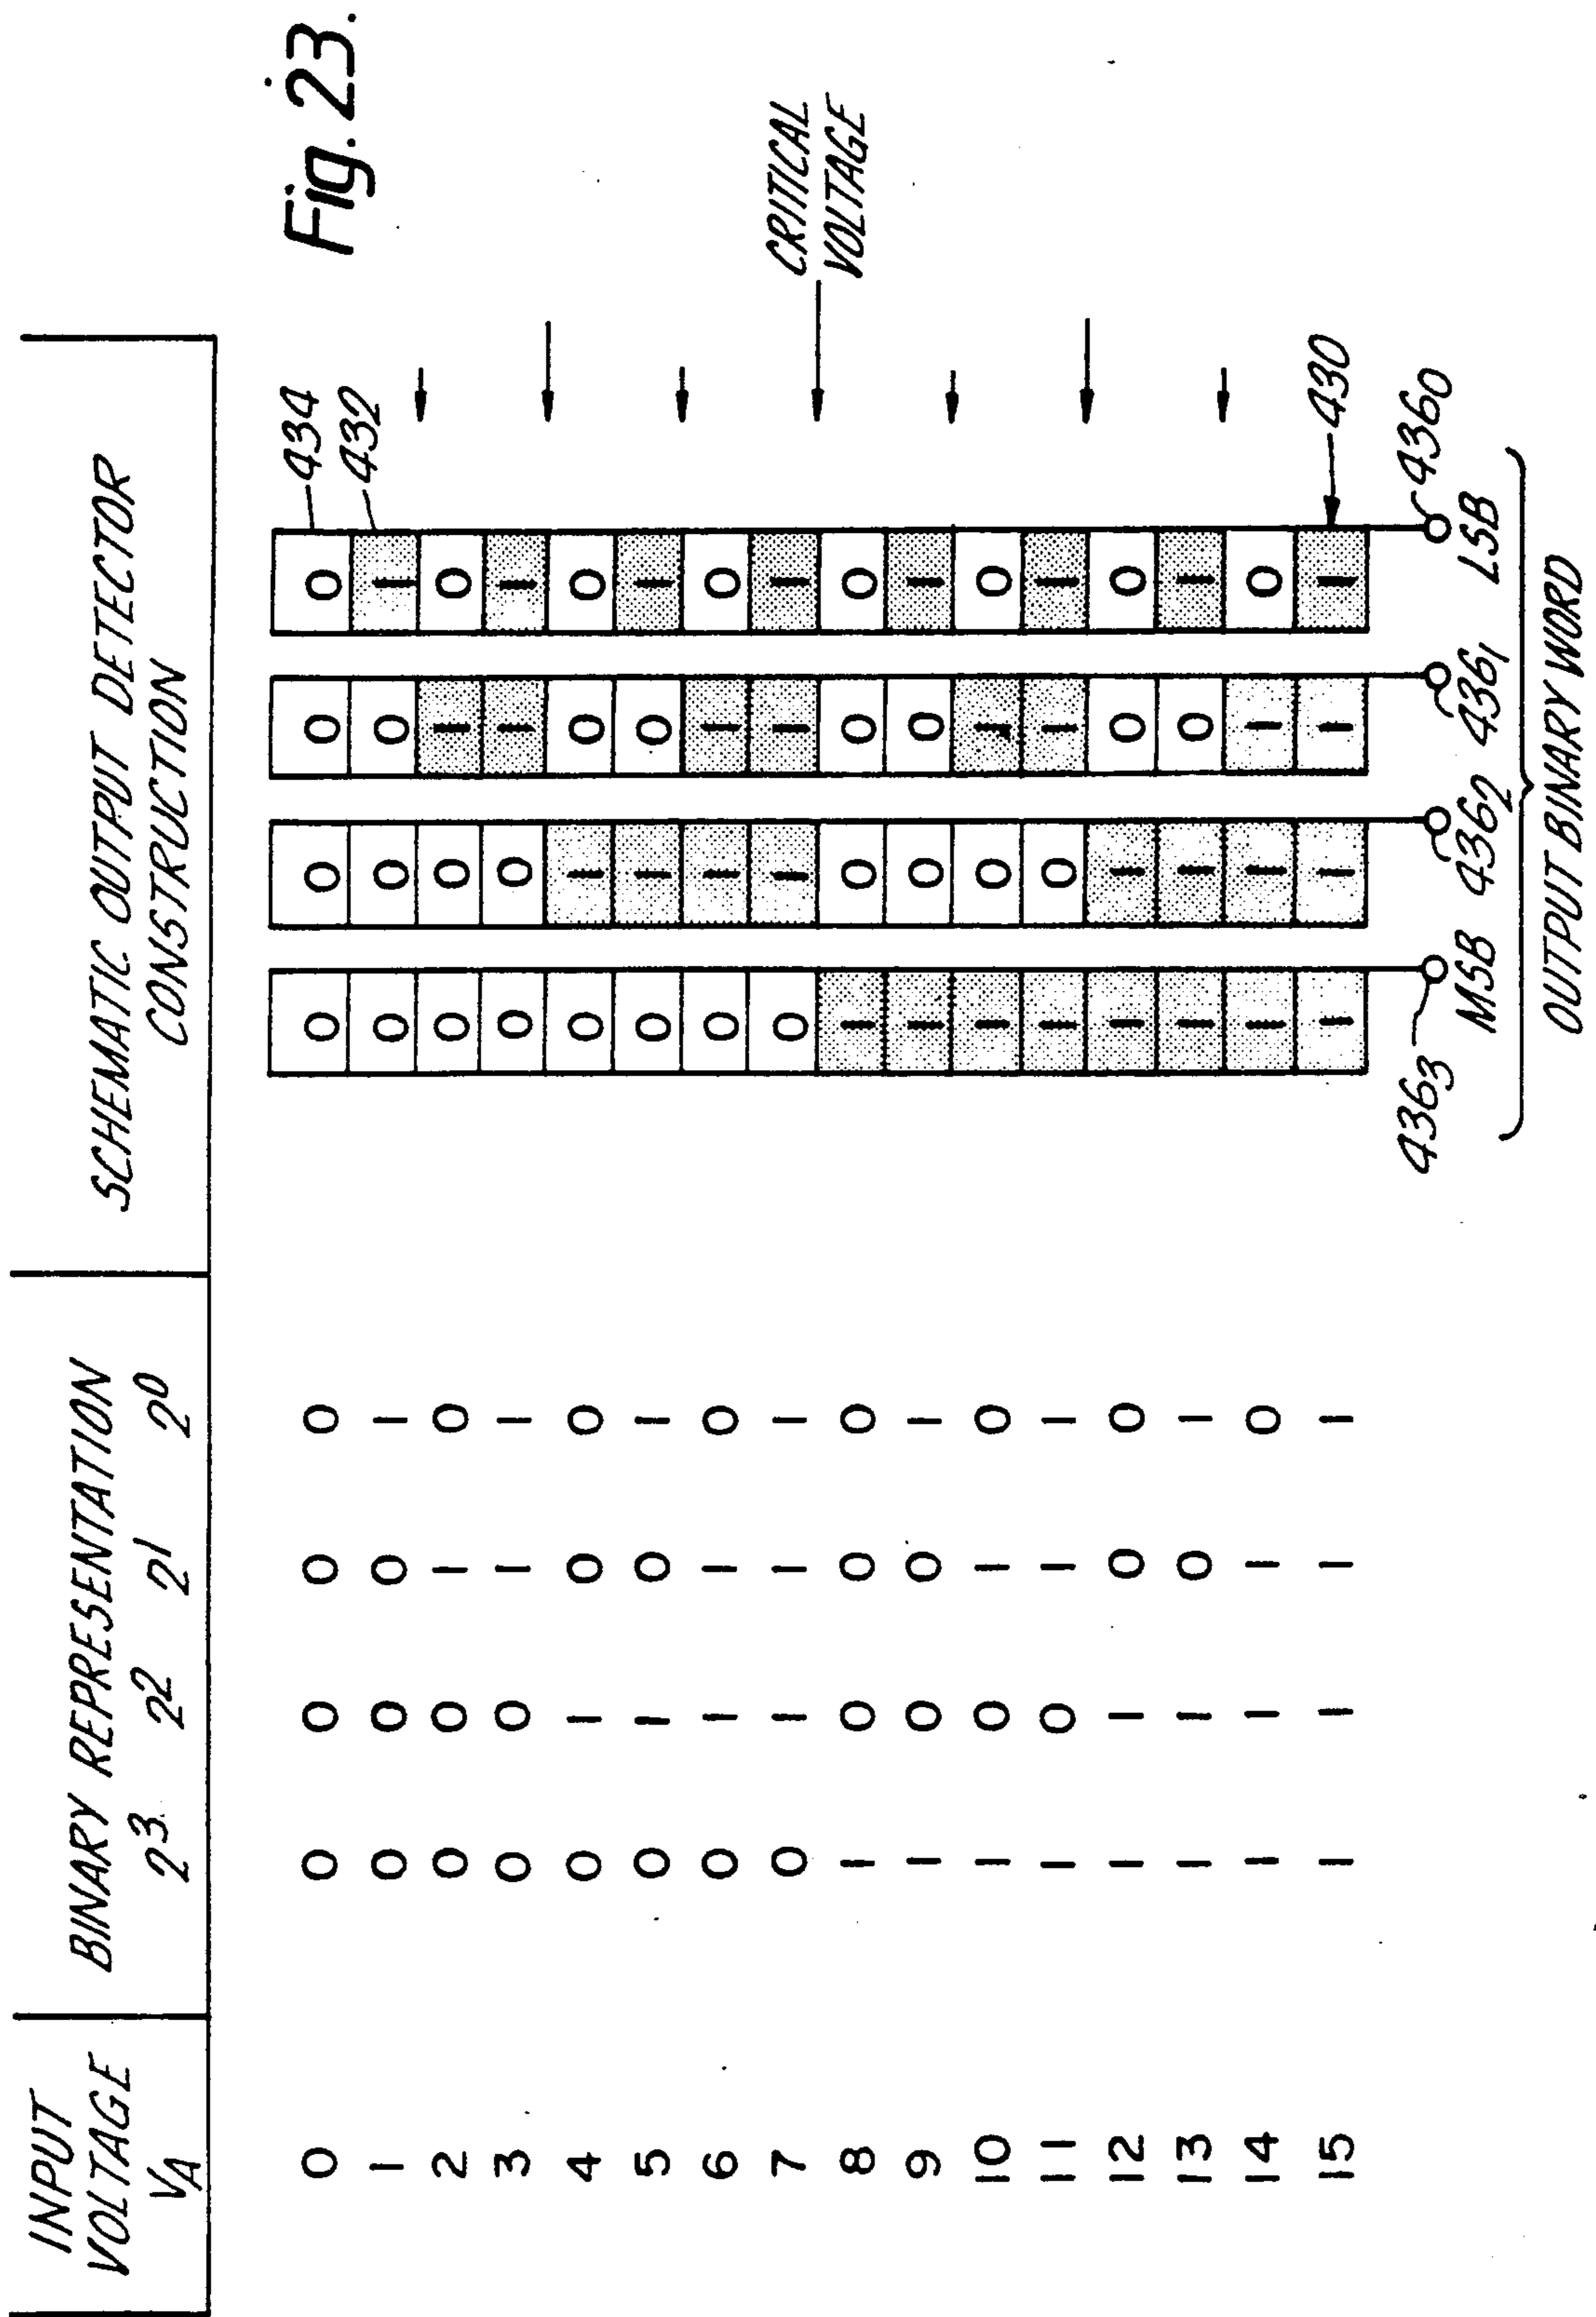 Fig. 23.
INPUT
VOLTAGE
VA
BINARY REPRESENTATION
2³ 2² 2¹ 2⁰
SCHEMATIC OUTPUT DETECTOR
CONSTRUCTION
434
432
0 0 0 0 0 0 0 0 0
1 0 0 0 1 0 0 0 1
2 0 0 1 0 0 0 1 0
3 0 0 1 1 0 0 1 1
4 0 1 0 0 0 1 0 0
5 0 1 0 1 0 1 0 1
6 0 1 1 0 0 1 1 0
7 0 1 1 1 0 1 1 1
CRITICAL
VOLTAGE
8 1 0 0 0 1 0 0 0
9 1 0 0 1 1 0 0 1
10 1 0 1 0 1 0 1 0
11 1 0 1 1 1 0 1 1
12 1 1 0 0 1 1 0 0
13 1 1 0 1 1 1 0 1
14 1 1 1 0 1 1 1 0
15 1 1 1 1 1 1 1 1
430
436₃ 436₂ 436₁ 436₀
MSB LSB
OUTPUT BINARY WORD